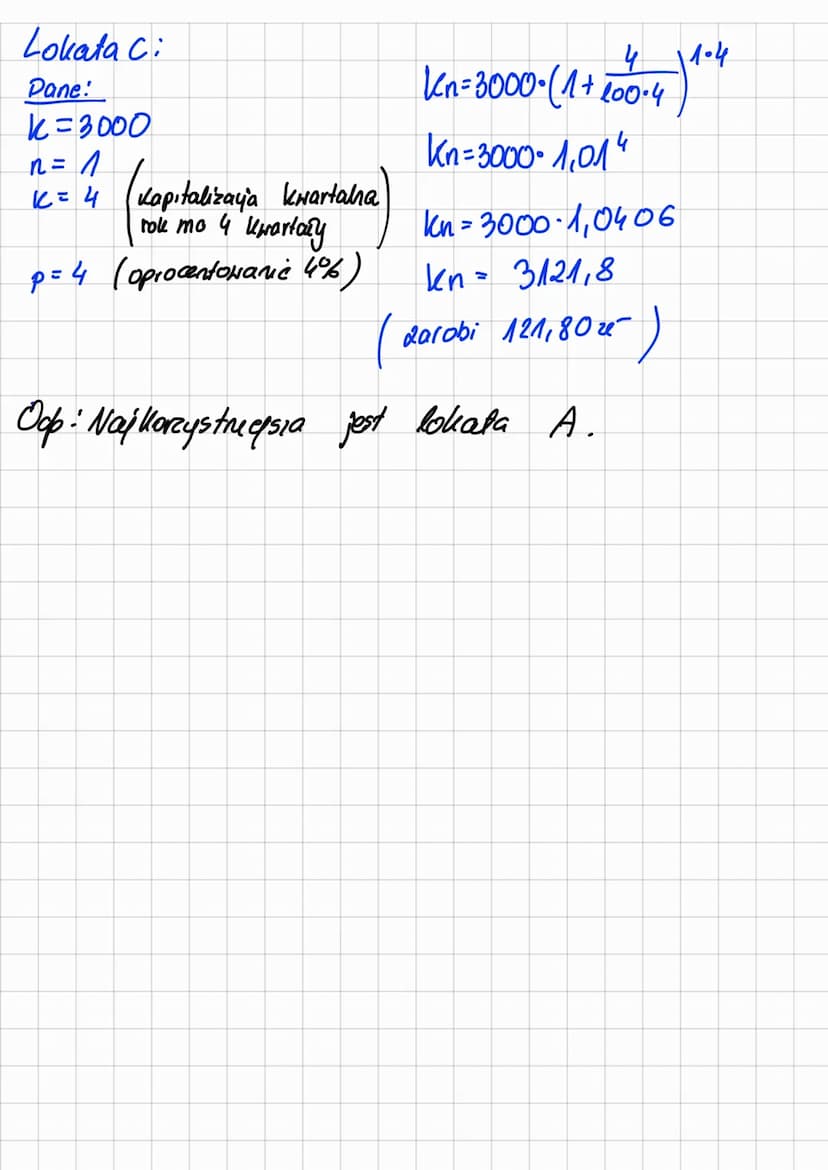 Lokata C:
Dane:
K = 3000
n = 1
K = 4 (kapitalizacja kwartalna
rok ma 4 kwartały)
p = 4 (oprocentowanie 4%)
Kn = 3000 · (1 + 4/(100·4))^1·4
Kn = 3000 · 1,01^4
Kn = 3000 · 1,0406
Kn = 3121,8
(zarobi 121,80 zł)
Odp: Najkorzystniejsza jest lokata A.